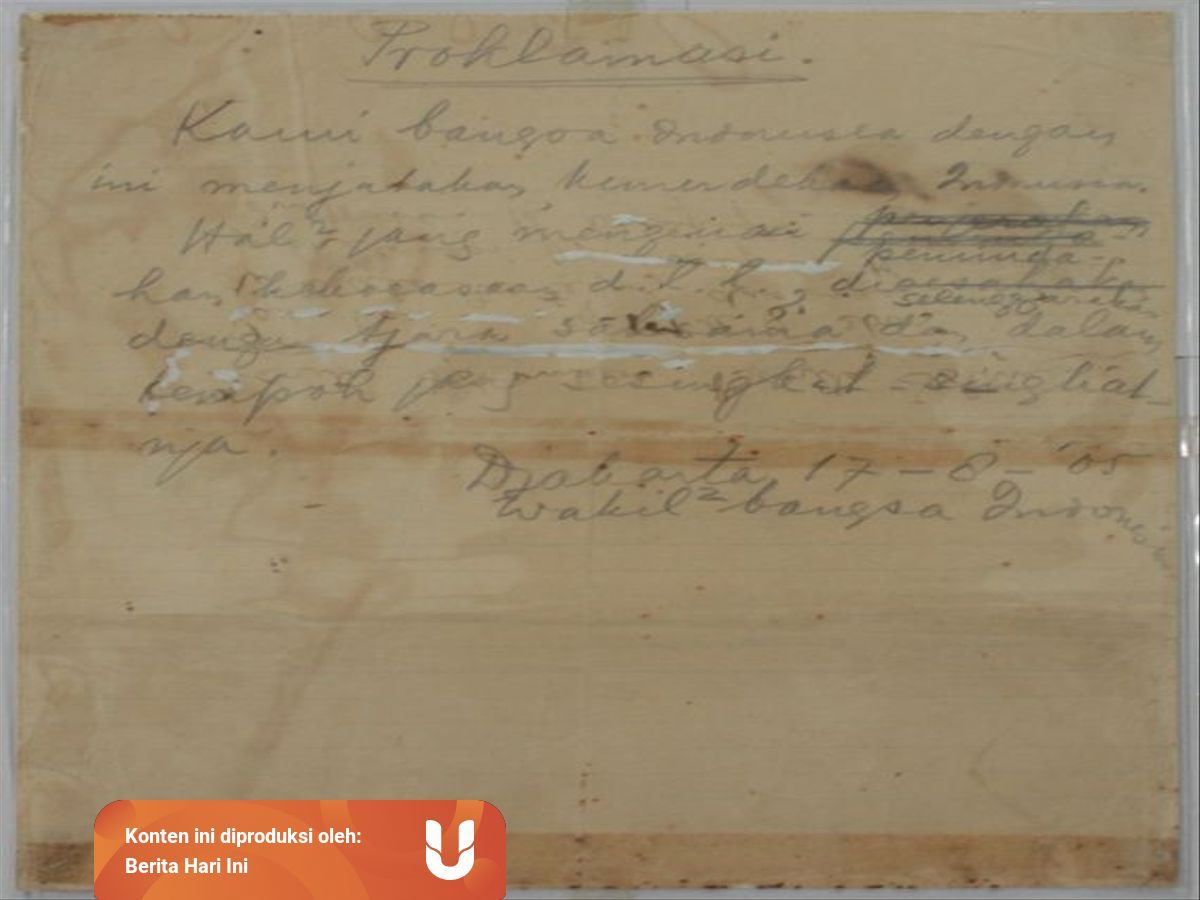 Proklamasi.
Kami bangsa Indonesia dengan
ini menjatakan kemerdekaan Indonesia.
Hal² jang mengenai penjerahan
peminda-
han kekoeasaan d.l.l., dioesahakan
diselenggarakan
dengan tjara saksama dan dalam
tempoh jang sesingkat-singkat-
nja.
Djakarta 17 - 8 - '05
Wakil² bangsa Indonesia
Konten ini diproduksi oleh:
Berita Hari Ini